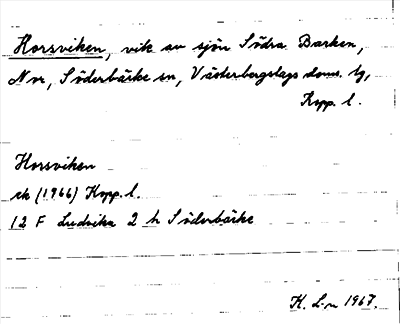 Horsviken, vik av sjön Södra Barken,
Nor, Söderbärke sn, Västerbergslags doms. tg,
Kopp. l.
Horsviken
ek (1966) Kopp. l.
12 F Ludvika 2 h Söderbärke
K. L-n 1967.